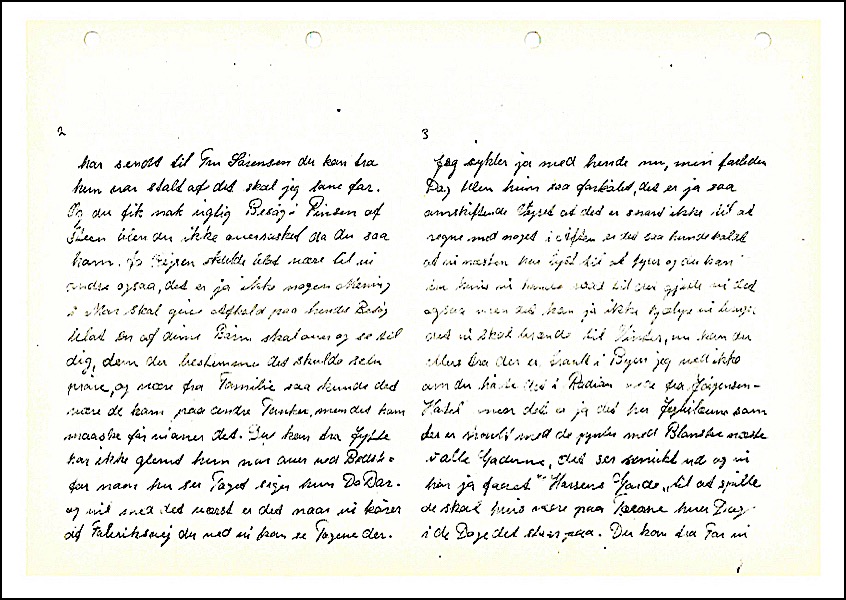 2
har sendt til Fru Sørensen du kan tro
hun var stolt af det skal jeg love for.
Og du fik nok rigtig Besøg i Pinsen af
blev du ikke overrasket da du saa
ham. Jo Rejsen skulde blot være til vi
andre ogsaa, det er ja ikke nogen Mening
i Mor skal give Afkald paa hendes Besøg
blot en af dine Børn skal over og se til
dig, dem der bestemmer det skulde selv
prøve, og være fra Familie saa kunde det
være de kom paa andre Tanker, men det kan
maaske før vi aner det. Du kan tro Jytte
har ikke glemt hun var over ved Bedste-
far naar hu ser Toget siger hun Da Dar-
og vil med det værst er det naar vi kører
af Fabriksvej der ved vi kan se Togene der.
3
Jeg cykler ja med hende nu, men forleden
Dag blev hun saa forkølet, det er ja saa
omskiftende Vejret at det er snart ikke til at
regne med noget i Aften er det saa hundekoldt
at vi næsten har lyst til at fyre og du kan
vi hende raad til der gjorde vi det
ogsaa men det kan ja ikke hjælpe vi bruger
det vi skal brænde til Vinter, nu kan du
ellers tro der er travlt i Byen jeg ved ikke
om du hørte det i Radioen fra Jørgensen-
Hotel men det er ja det her Jubilæum som
der er travlt med de pynter med Blomster
alle Gaderne, det ser smukt ud og vi
har ja faaet "Hossens Garde" til at spille
de skal hvis være paa Torvene hver Dag
i de Dage det staar paa. Du kan tro Far vi